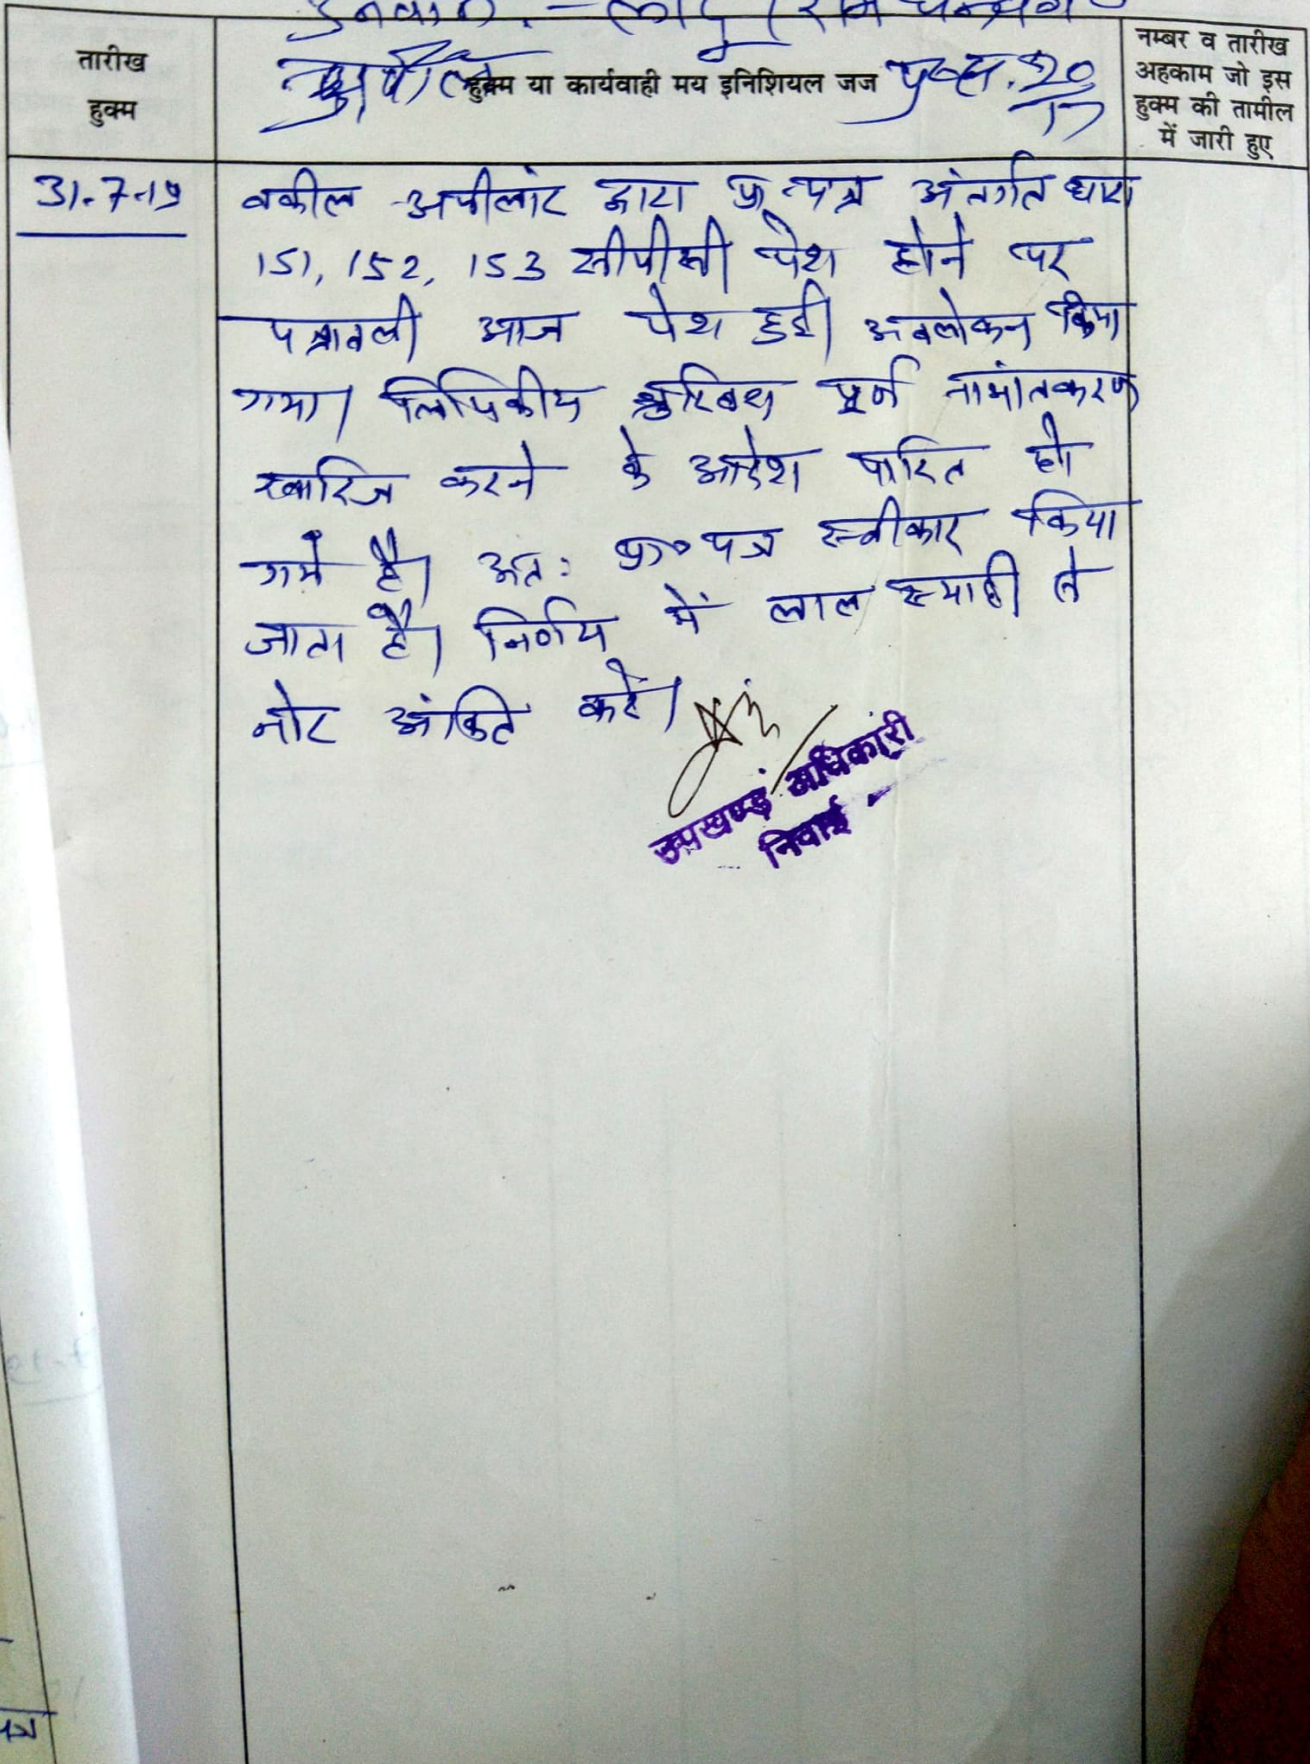 उनवान :- लादू / राम
तारीख
हुक्म
हुक्म या कार्यवाही मय इनिशियल जज
नम्बर व तारीख
अहकाम जो इस
हुक्म की तामील
में जारी हुए
अपील
20
17
31-7-19
वकील अपीलांट द्वारा प्रा०पत्र अंतर्गत धारा
151, 152, 153 सीपीसी पेश होने पर
पत्रावली आज पेश हुई। अवलोकन किया
गया। लिपिकीय पूर्ण नामांतकरण
खारिज करने के आदेश पारित हो
गये है। अत: प्रा०पत्र स्वीकार किया
जाता है। निर्णय में लाल स्याही से
नोट अंकित करें।
उपखण्ड अधिकारी
निवाई